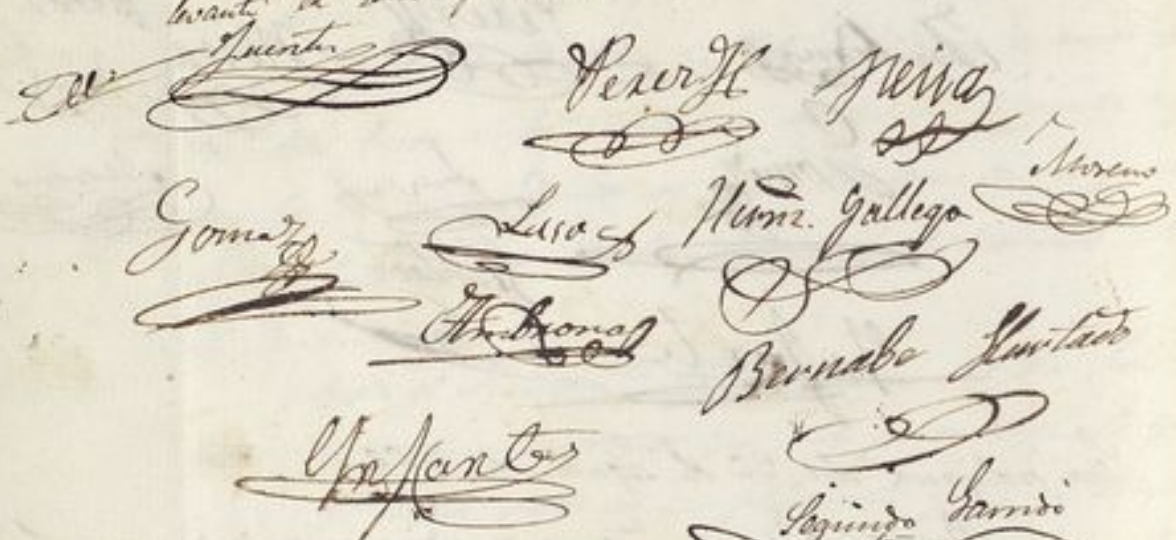 levanté
Fuentes
Perez H Neira
Moreno
Gomez Luso Nuñz. Gallego
Ambrona
Bernabe Hurtado
Ynfantes
Segundo Garrido